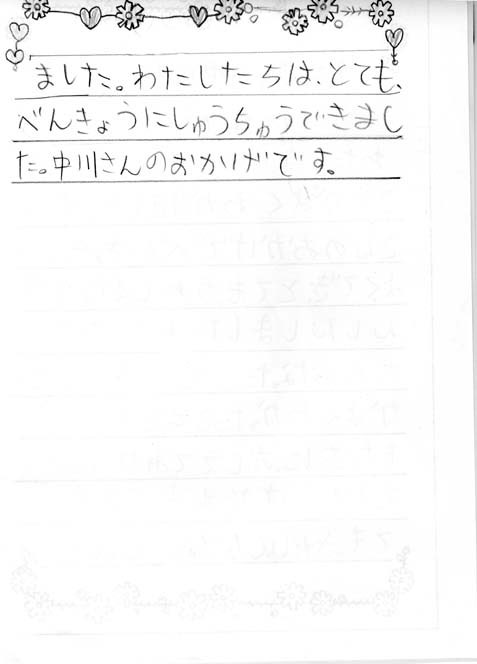 ました。わたしたちは、とても、
べんきょうにしゅうちゅうできまし
た。中川さんのおかげです。